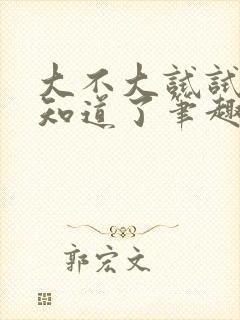 大不大试试
知道了笔趣
郭宏文